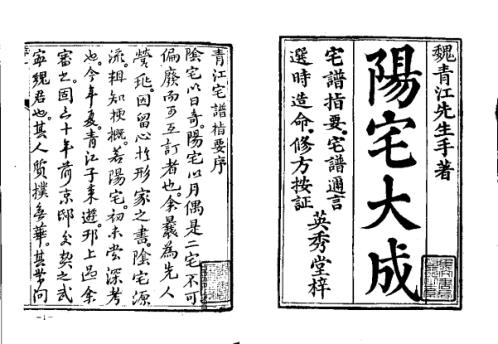 魏青江先生手著
陽宅大成
宅譜指要宅譜邇言
選時造命修方按証
英秀堂梓
青江宅譜指要序
陰宅以日奇陽宅以月偶是二宅不可
偏廢而可互訂者也余曩為先人
塋兆因留心於形家之書陰宅源
流粗知梗概若陽宅初未嘗深考
也今年夏青江子来遊邗上過余
審之固三十年前京邸友契之武
寧魏君也其人質樸無華其學問
-1-